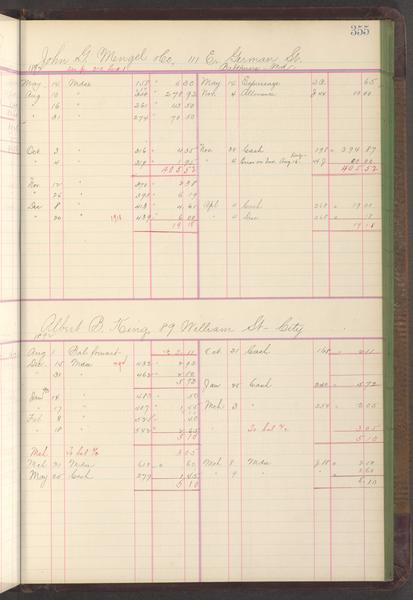 355
John G. Mengel & Co, 111 E. German St.
Baltimore Md
May 14 Mdse 158 " 6 30 May 14 Expressage 65
Aug 10 " 278 92 Nov. 4 Allowance J 44 10 00
" 16 " 261 " 43 50
" 31 " 274 " 70 50
Oct 3 " 316 " 4 35 Nov. 28 Cash 198 " 294 87
" 4 " 1 95 " 4 Error on Inv. Aug 16 44 J 100 00
405 52 405 52
Nov 12 " 390 " 2 98
" 26 " 398 " 6 19
Dec 8 " 413 " 4 01 Apl 4 Cash 268 " 19 00
" 20 " 439 " 6 00 " 4 Disc 268 " 18
19 18 19 18
Albert B. King, 89 William St- City
Aug 1 Bal. forward 2 11 Oct. 21 Cash 168 " 2 11
Dec. 15 Mdse 432 " 2 92
" 31 " 462 " 2 80
5 72 Jan 25 Cash 5 72
Jan 14 " 50
" 17 " 487 " 1 55 Mch 3 " 254 " 2 05
Feb 8 " 525 " 40
" 18 " 542 " 2 65 " To bal a/c 3 05
5 10 5 10
Mch To bal a/c 3 05
Mch 31 Mdse 610 " 60 Mch 8 Mdse J 18 " 2 50
May 25 Cash 279 1 45 " 9 " " 2 60
5 10 5 10